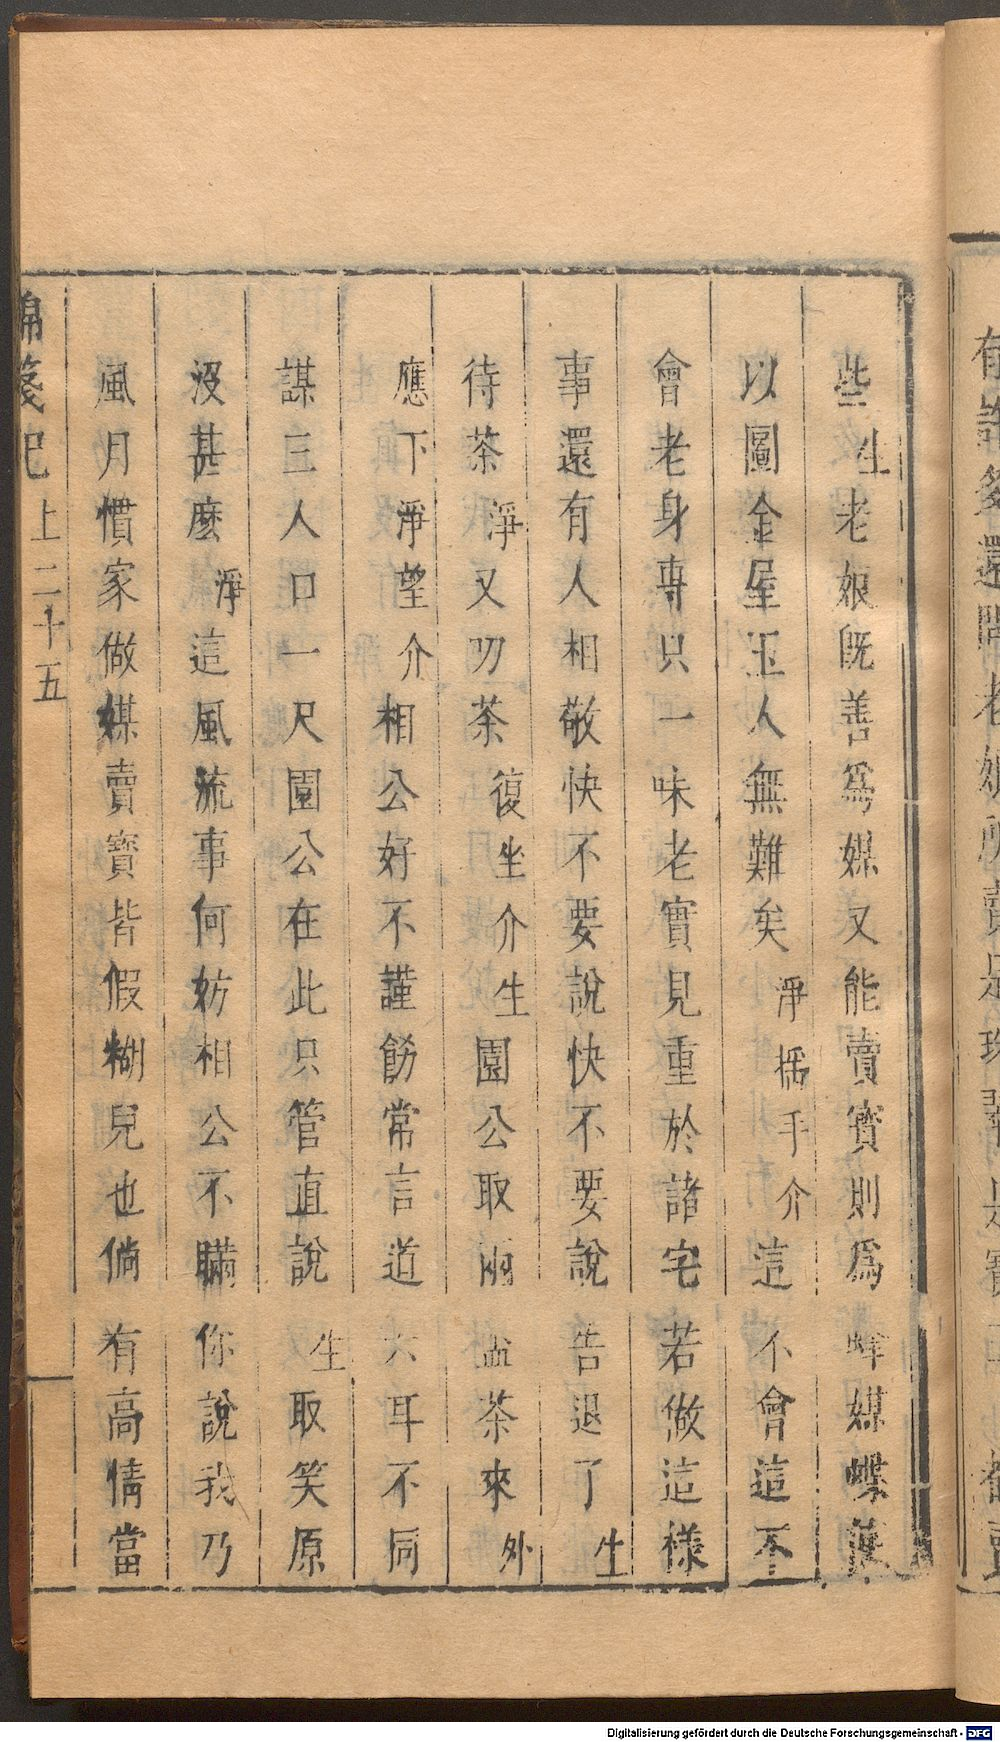 些生老娘既善爲媒又能賣寳則爲蜂媒蝶使
以圖金屋玉人無難矣淨揺手介這不會這不
會老身專只一味老實見重於諸宅若做這樣
事還有人相敬快不要說快不要說告退了生
待茶淨又叨茶復坐介生園公取兩盃茶來外
應下淨望介相公好不謹飭常言道六耳不同
謀三人口一尺園公在此只管直說生取笑原
没甚麽淨這風流事何妨相公不瞞你說我乃
風月慣家做媒賣寳皆假糊兒也倘有高情當
錦箋記上二十五
Digitalisierung gefördert durch die Deutsche Forschungsgemeinschaft - DFG